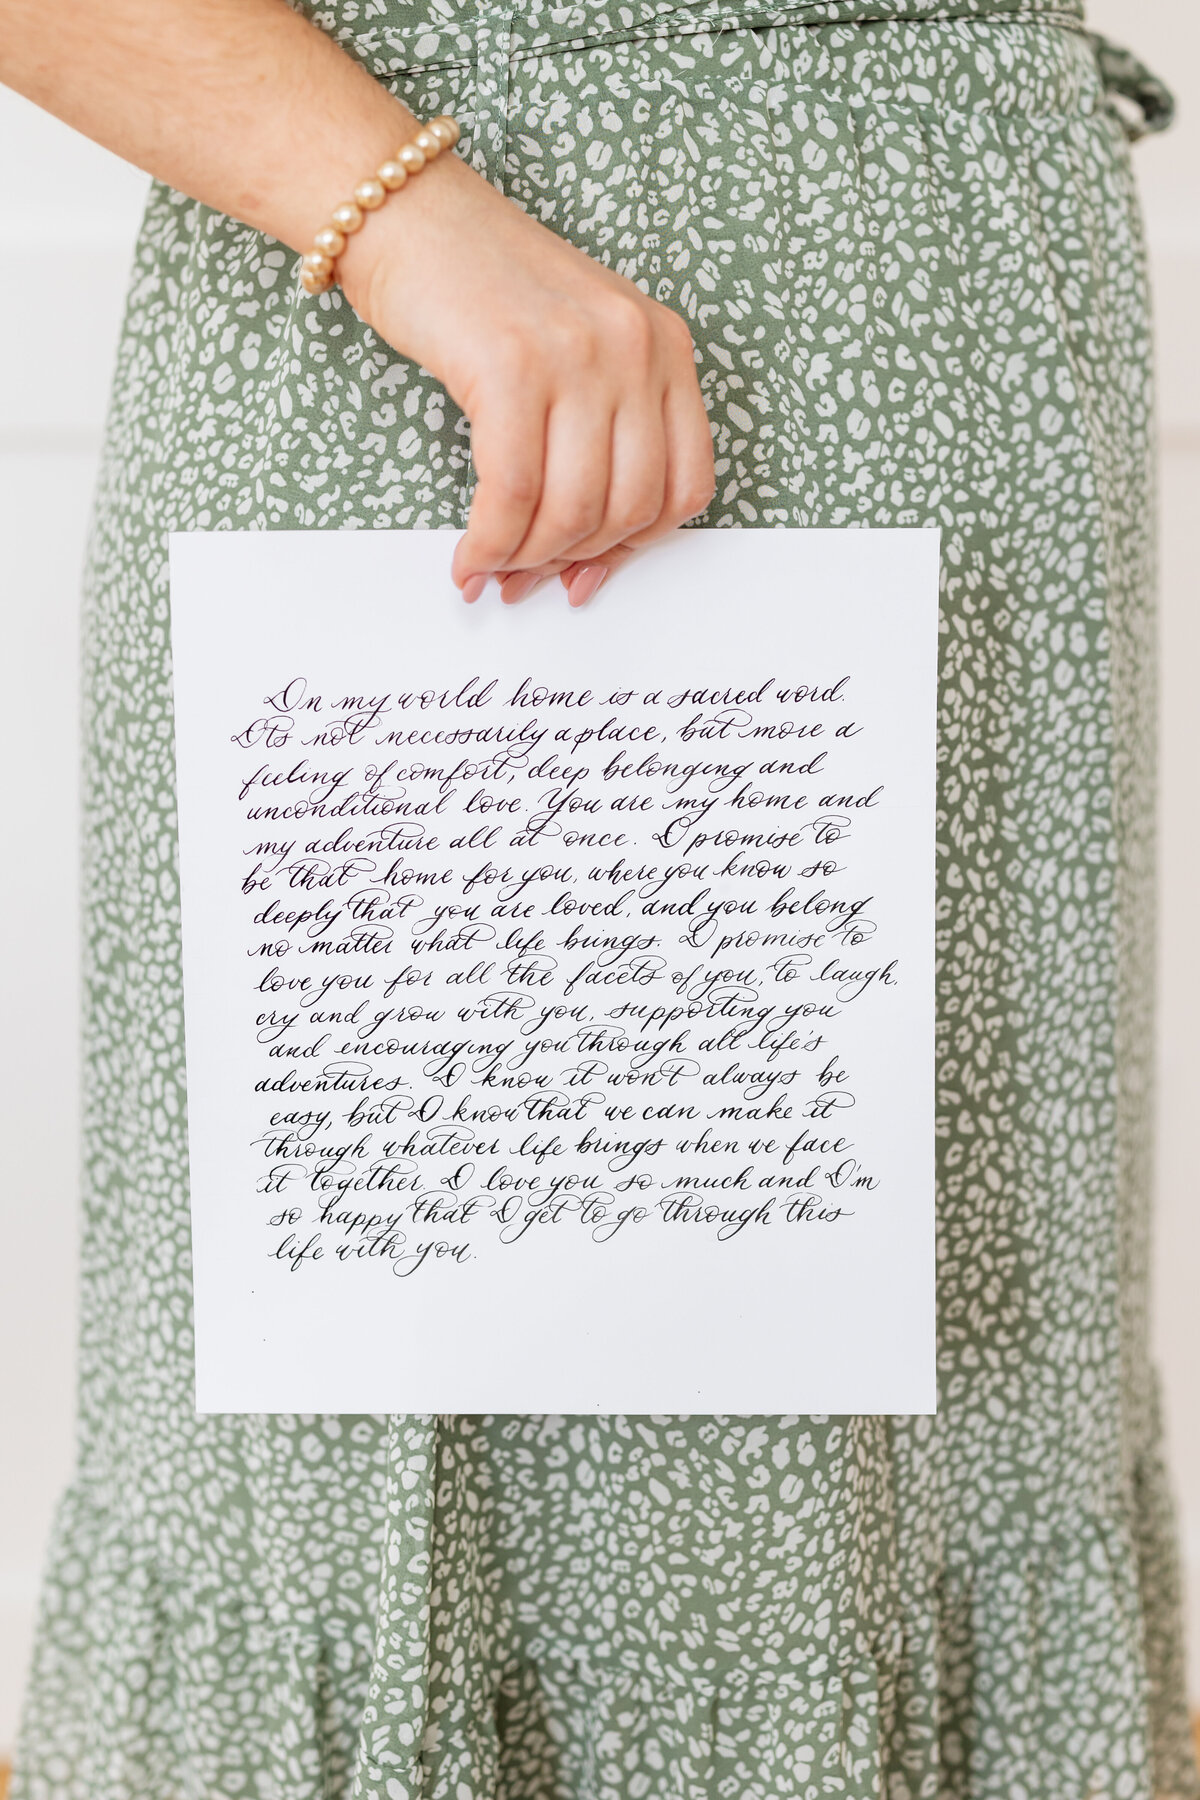 In my world home is a sacred word.
Its not necessarily a place, but more a
feeling of comfort, deep belonging and
unconditional love. You are my home and
my adventure all at once. I promise to
be that home for you, where you know so
deeply that you are loved, and you belong
no matter what life brings. I promise to
love you for all the facets of you, to laugh,
cry and grow with you, supporting you
and encouraging you through all life's
adventures. I know it won't always be
easy, but I know that we can make it
through whatever life brings when we face
it together. I love you so much and I'm
so happy that I get to go through this
life with you.